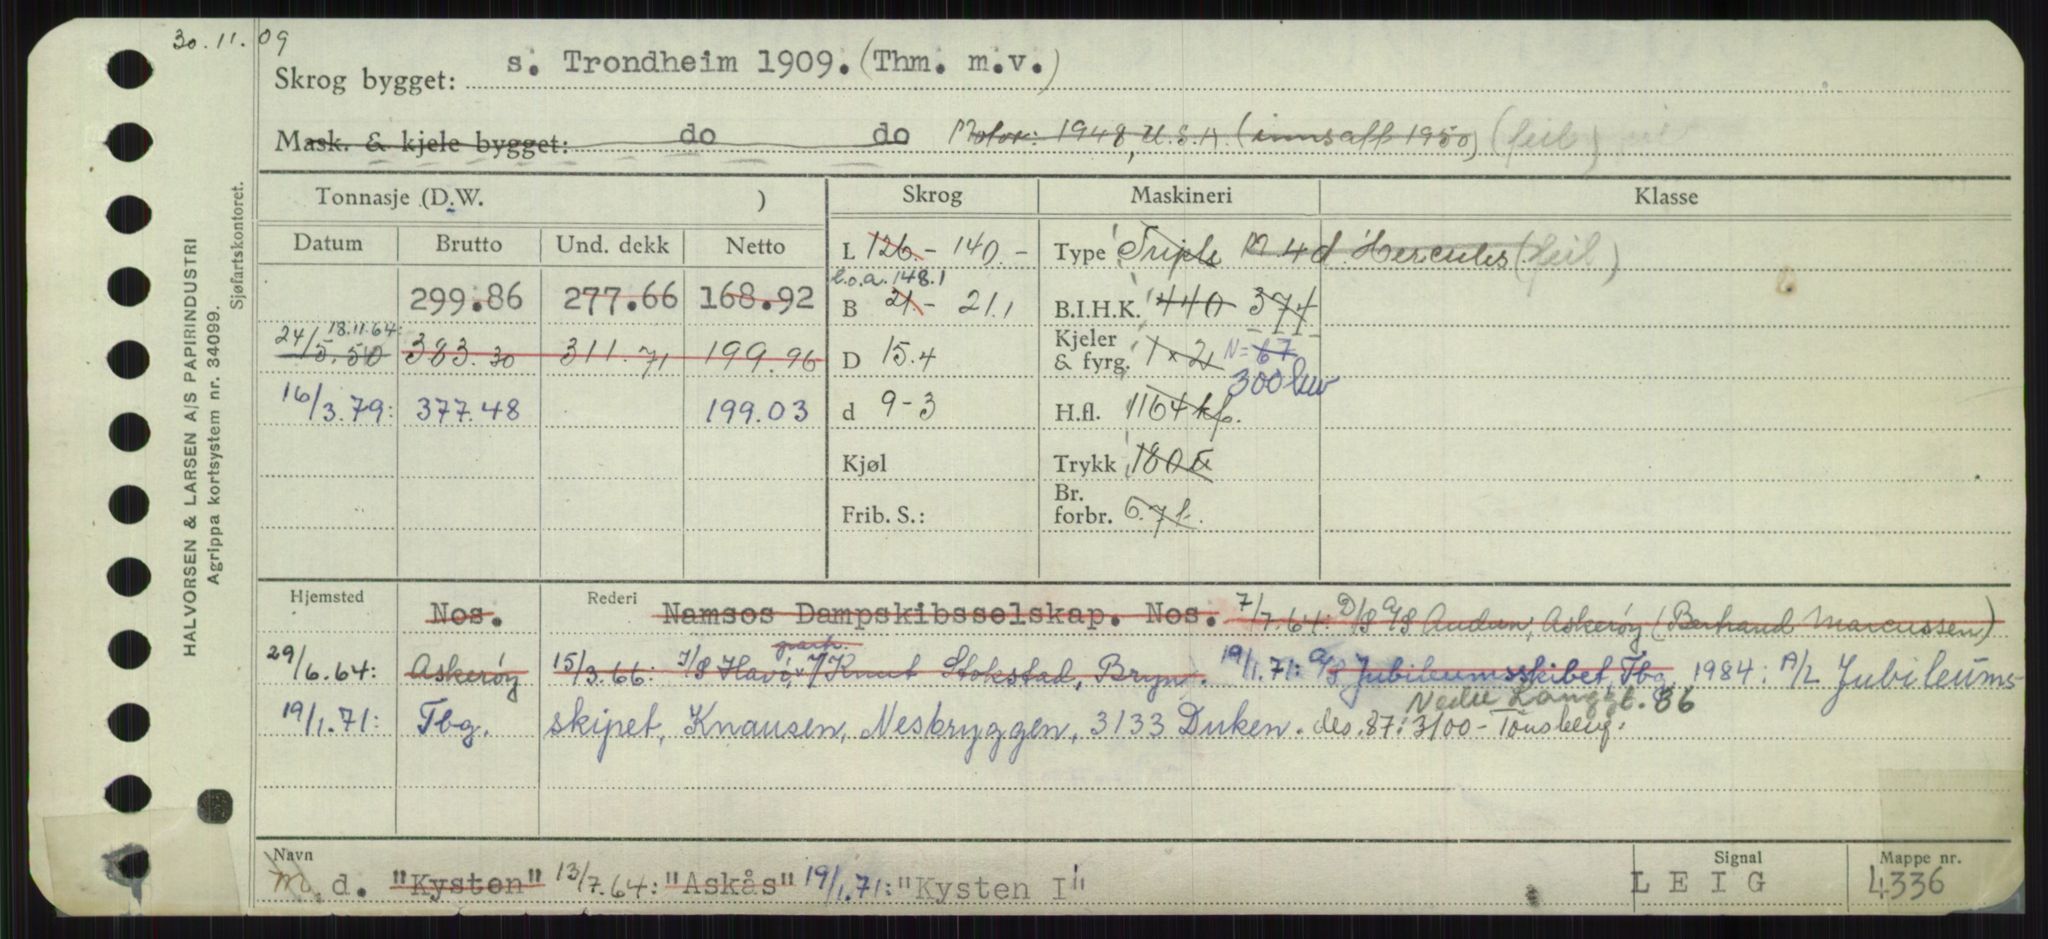 30.11.09
Skrog bygget: s. Trondheim 1909. (Thm. m.v.)
Mask. & kjele bygget: do do Motor: 1948, U.S.A. (innsatt 1950) (feil)
Tonnasje (D.W. ) Skrog Maskineri Klasse
Datum Brutto Und. dekk Netto
L 126.- 140.- Type Triple M 4d. Hercules (feil)
l.o.a. 148.1
299.86 277.66 168.92 B 21.- 21.1 B.I.H.K. 440 374
18.11.64:
24/5.50 383.30 311.71 199.96 D 15.4 Kjeler & fyrg. 1 x 2 N=67
300 kw
16/3.79: 377.48 199.03 d 9-3 H.fl. 1164 kf.
Kjøl Trykk 180
Frib. S.: Br. forbr. 6.7 t.
Hjemsted Nos. Rederi Namsos Dampskibsselskap. Nos. 7/7.64: D/S A/S Audun, Askerøy (Berhand Marcussen)
part.
29/6.64: Askerøy 15/3.66: I/S Havø, v/Knut Stokstad, Bryn. 19/1.71: A/S Jubileumsskibet, Tbg. 1984: A/L Jubileums-
Nedre Langgt. 86
19/1.71: Tbg. skipet, Knausen, Nesbryggen, 3133 Duken. des. 87: 3100 - Tønsberg.
Navn Signal Mappe nr.
M. d. "Kysten" 13/7.64: "Askås" 19/1.71: "Kysten I" L E I G 4336
HALVORSEN & LARSEN A/S PAPIRINDUSTRI
Agrippa kortsystem nr. 34099.
Sjøfartskontoret.